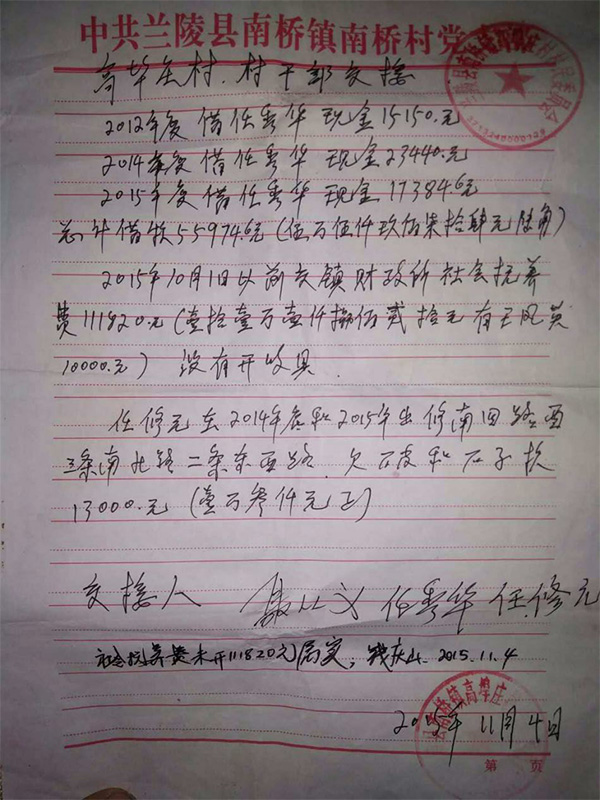 中共兰陵县南桥镇南桥村党
高华庄村.村干部交接
2012年度借任秀华 现金15150.元
2014年度借任秀华 现金23440.元
2015年度借任秀华 现金17384.6元
总计借款55974.6元(伍万伍仟玖佰柒拾肆元陆角)
2015年10月1日以前交镇财政所社会抚养
费111820.元(壹拾壹万壹仟捌佰贰拾元 有王凤英
10000.元) 没有开收具.
任修元在2014年底和2015年 修南田路西
三条南北路 二条东西路. 欠 和石子款
13000.元 (壹万参仟元正)
交接人 任秀华 任修元
社会抚养费未开111820元属实, 庆山. 2015.11.4
镇高埠庄
2015年11月4日
第 页